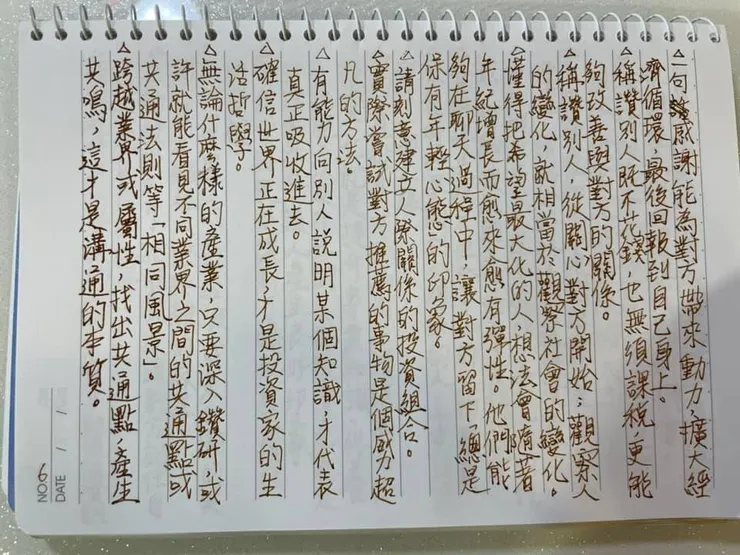 △一句感謝能為對方帶來動力，擴大經
濟循環，最後回報到自己身上。
△稱讚別人既不花錢，也無須課稅，更能
夠改善與對方的關係。
△稱讚別人，從關心對方開始；觀察人
的變化，就相當於觀察社會的變化。
△懂得把希望最大化的人，想法會隨著
年紀增長而愈來愈有彈性。他們能
夠在聊天過程中，讓對方留下「總是
保有年輕心態」的印象。
△請刻意建立人際關係的投資組合。
△實際嘗試對方推薦的事物是個威力超
凡的方法。
△有能力向別人說明某個知識，才代表
真正吸收進去。
△確信世界正在成長，才是投資家的生
活哲學。
△無論什麼樣的產業，只要深入鑽研，或
許就能看見不同業界之間的共通點或
共通法則等「相同風景」。
△跨越業界或屬性，找出共通點，產生
共鳴，這才是溝通的本質。
NO. 6
DATE / /